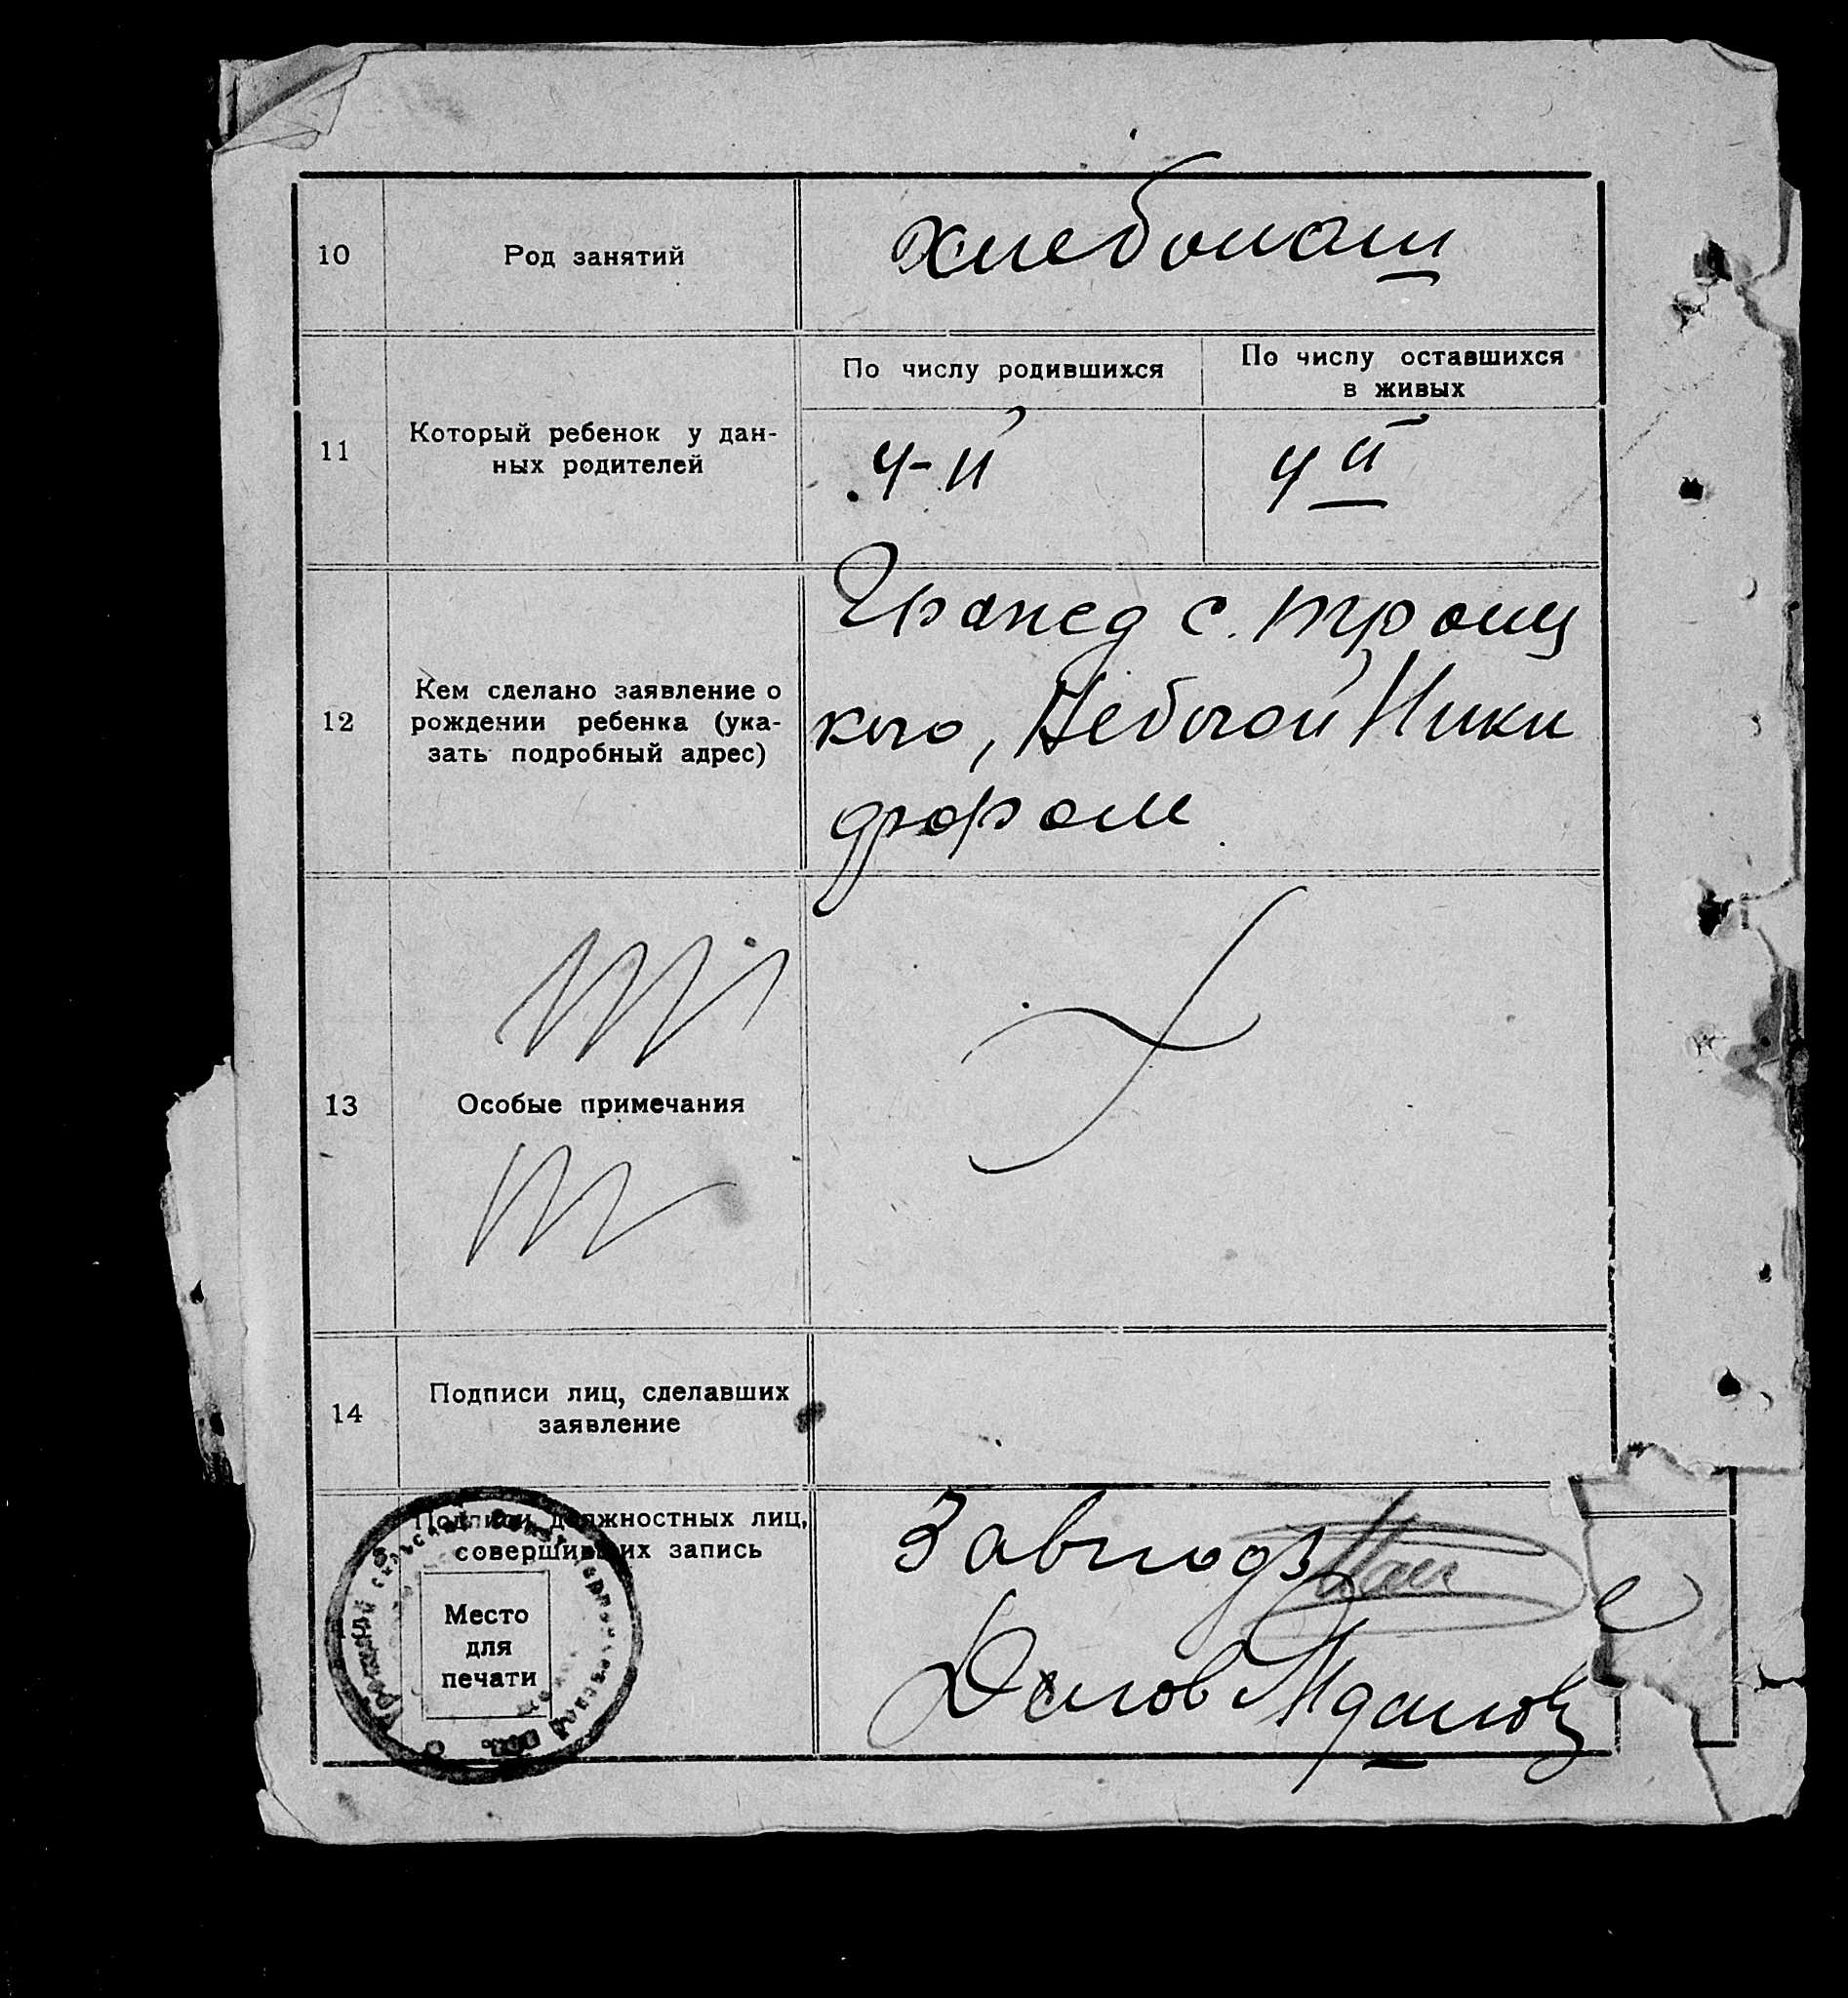 10
Род занятий
хлебопаш
11
Который ребенок у дан-
ных родителей
По числу родившихся
По числу оставшихся
в живых
4-й
4й
12
Кем сделано заявление о
рождении ребенка (ука-
зать подробный адрес)
Гражед с. Троиц
кого, Небогой Ники
фором
13
Особые примечания
14
Подписи лиц, сделавших
заявление
15
Подписи должностных лиц,
совершивших запись
Место
для
печати
Завподз
Делов